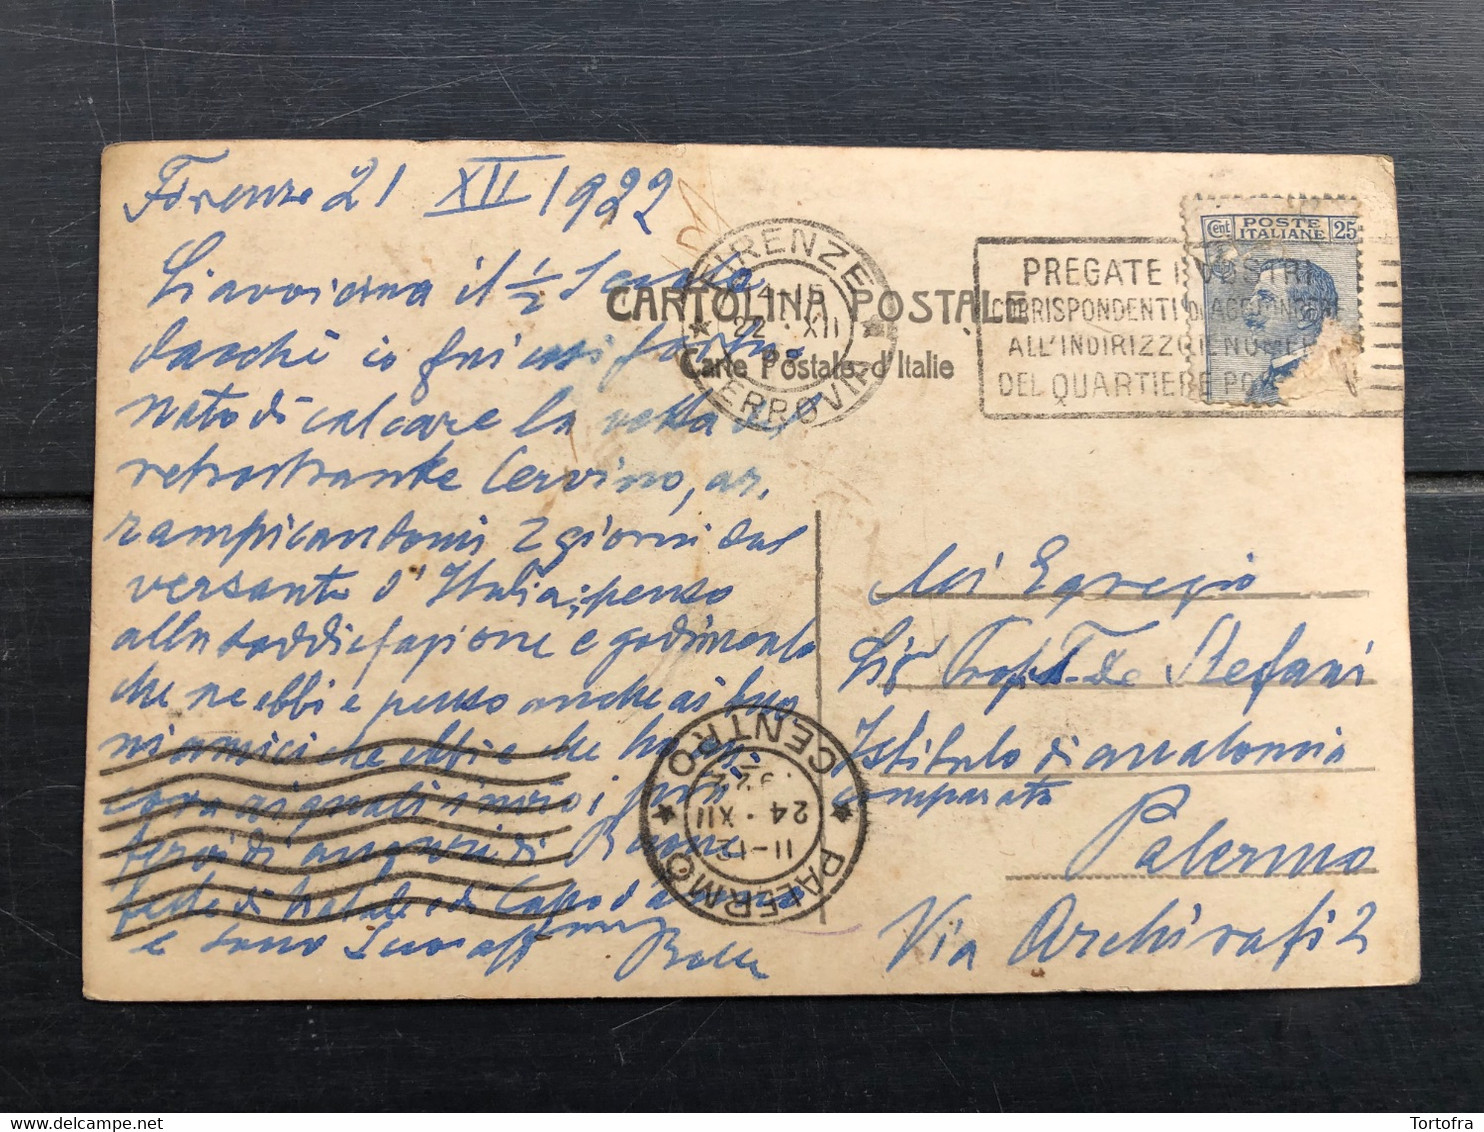 Firenze 21 XII 1922
Si avvicina il ½ Secolo
dacchè io fui sì fortu-
nato di calcare la vetta del
retrostrante Cervino, ar.
rampicandomi 2 giorni dal
versante d'Italia; penso
alla soddisfazione e godimento
che ne ebbi e penso anche ai buo
ni amici che ebbi e che ho an
cora ai quali invio i più
fervidi auguri di Buone
feste di Natale e di Capo d'anno
e sono Suo aff
CARTOLINA POSTALE
Carte Postale d'Italie
FIRENZE
FERROVIA
14-15
22 · XII
POSTE
ITALIANE
Cent 25
PREGATE I VOSTRI
CORRISPONDENTI DI AGGIUNGERE
ALL'INDIRIZZO IL NUMERO
DEL QUARTIERE POSTALE
All Egregio
Sig Prof. T. De Stefani
Istituto di anatomia
comparata
Palermo
Via Archirafi 2
PALERMO
CENTRO
11-12
24 · XII
Tortofra